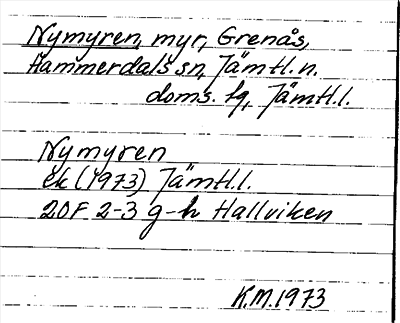 Nymyren, myr, Grenås,
Hammerdals sn, Jämtl. n.
doms. fg, Jämtl. l.
Nymyren
ek (1973) Jämtl. l.
20F 2-3 g-h Hallviken
K.M. 1973